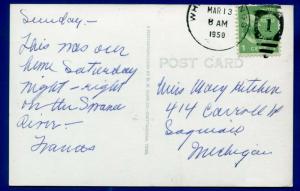 Sunday –
This was our
home Saturday
night – right
on the Swanee
River –
Frances
POST CARD
MAR 13
8 AM
1950
1
1 CENT
Miss Mary Hitchen
414 Carroll St
Saginaw
Michigan